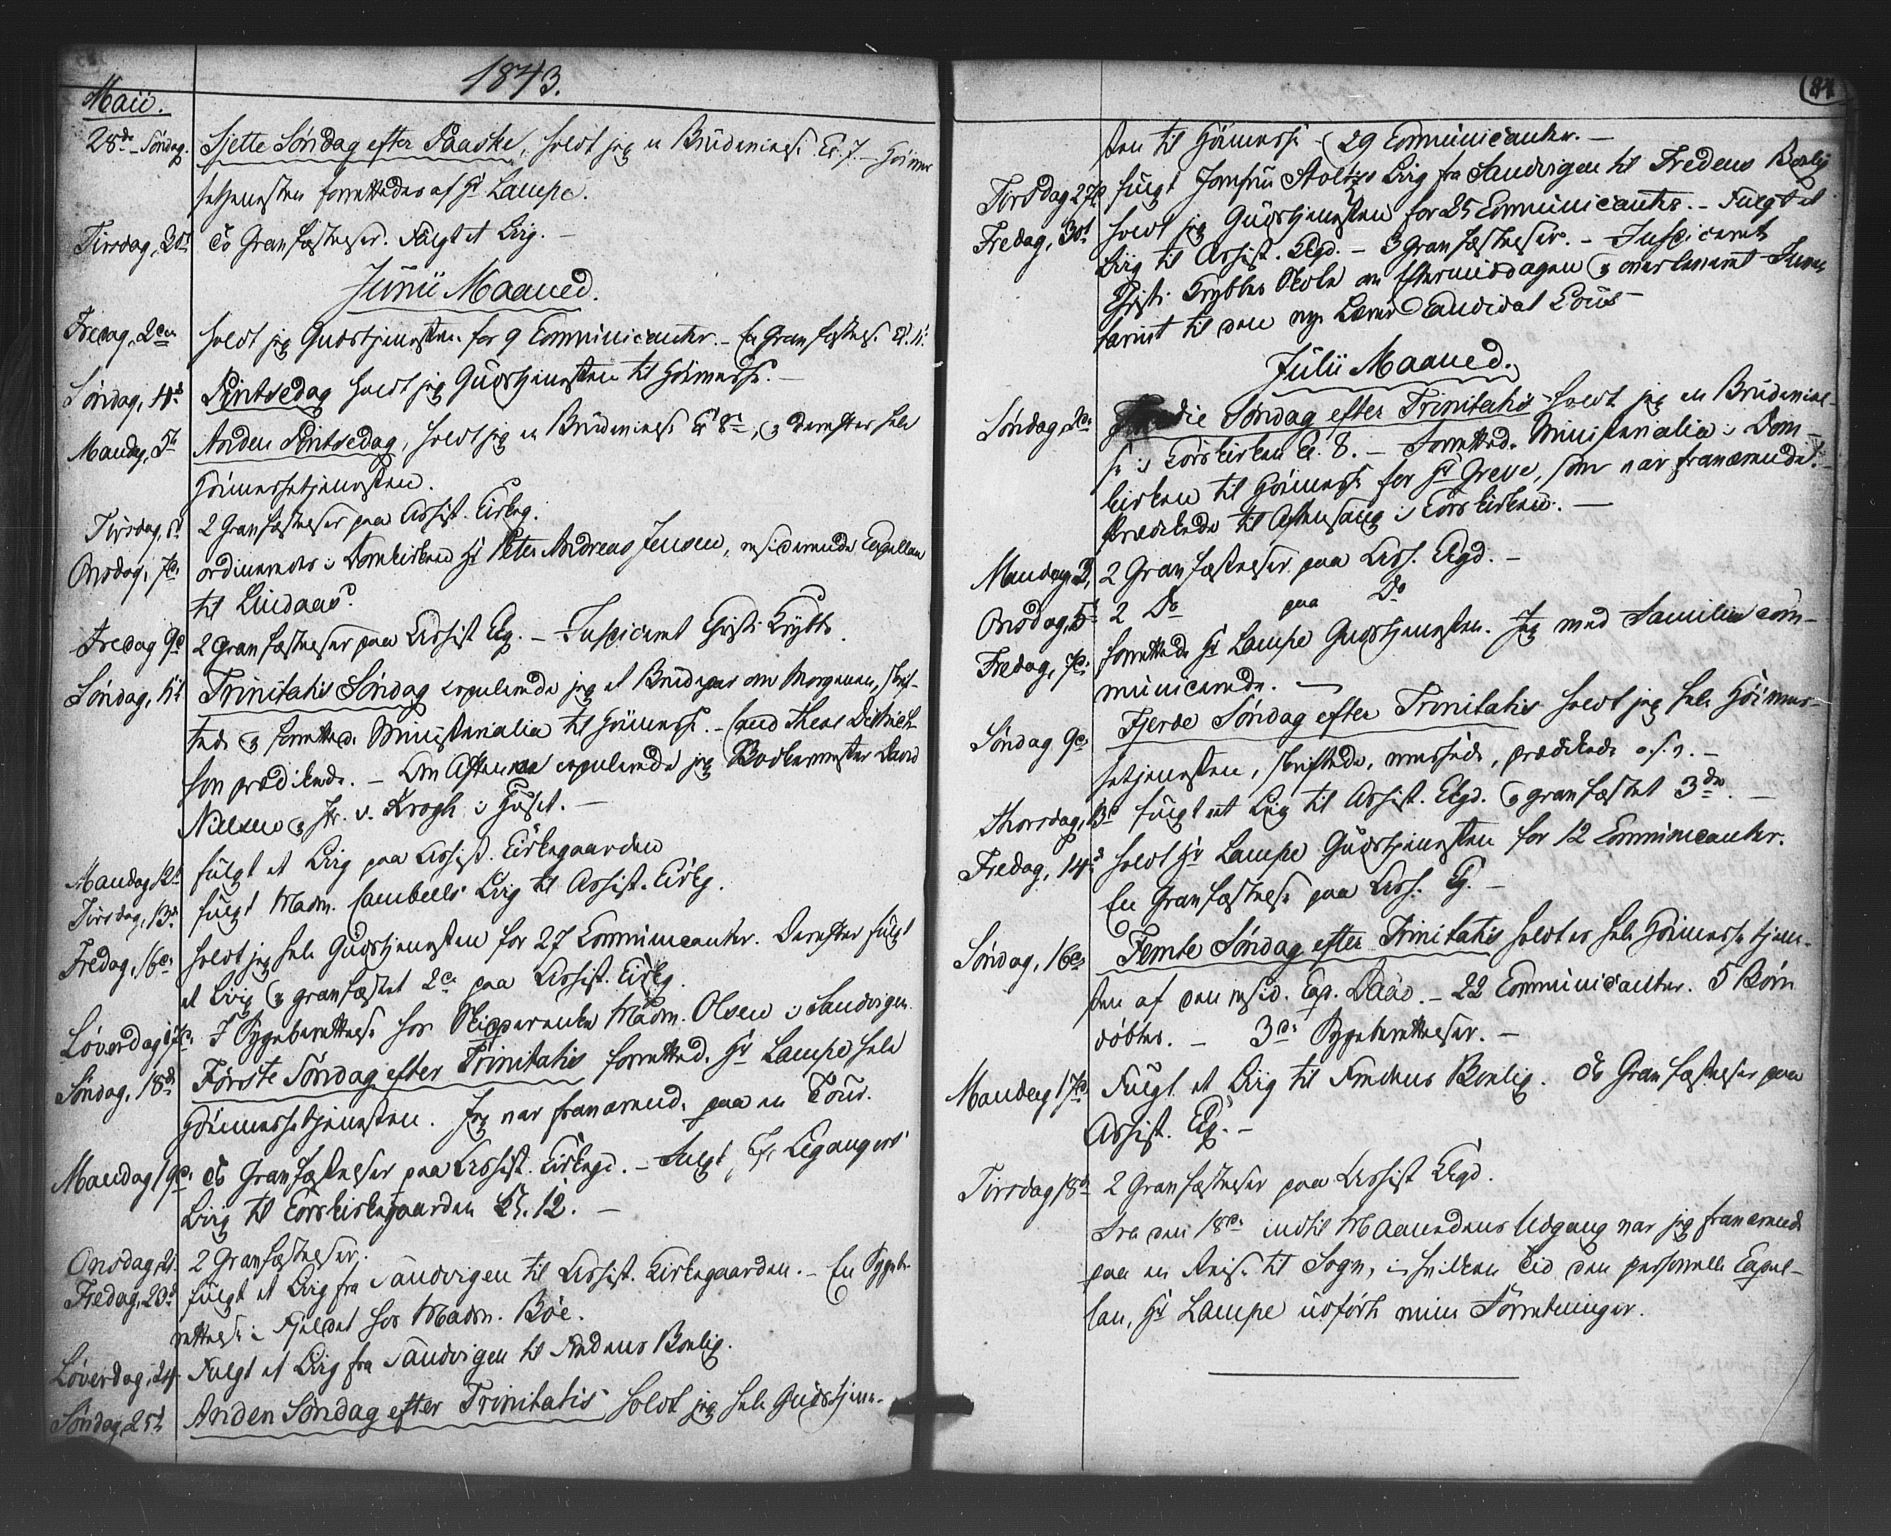 1843.
Maii.
28de Søndag. Sjette Søndag efter Paaske, holdt jeg en Brudemesse Kl. 7. – Høimes
setjenesten forrettedes af Hr Lampe.
Tirsdag, 30t do Granfæstelser. Fulgt et Liig. –
Junii Maaned.
Fredag, 2den holdt jeg Gudstjenesten for 9 Communicanter. – En Granfæstelse Kl. 11.
Søndag, 4de Pintsedag holdt jeg Gudstjenesten til Høimesse. –
Mandag, 5te Anden Pintsedag, holdt jeg en Brudemesse Kl 8, og derefter hele
Høimessetjenesten.
Tirsdag, 6t 2 Granfæstelser paa Assist. Kirkeg.
Onsdag, 7de ordineredes i Domkirken Hr Peter Andreas Jensen, residerende Capellan
til Lindaas.
Fredag 9de 2 Granfæstelser paa Assist Kg. – Inspiceret Christi Krybbe.
Søndag, 11t Trinitatis Søndag copulerede jeg et Brudepar om Morgenen, skrif-
tede og forrettede Ministerialia til Høimesse. – Cand Theol Dittrich-
son prædikede. – Om Aftenen copulerede jeg Bødkermester David
Nielsen og Jfr. v. Krogh i Huset. –
Mandag 12t fulgt et Liig paa Assist. Kirkegaarden
Tirsdag, 13de fulgt Madm. Cambells Liig til Assist. Kirkeg.
Fredag, 16de holdt jeg hele Gudstjenesten for 27 Communicanter. Derefter fulgt
et Liig og granfæstet 2de paa Assist. Kirkeg.
Løverdag 17de I Sygeberettelse hos Skipperenke Madm. Olsen i Sandvigen.
Søndag, 18de Første Søndag efter Trinitatis forrettede Hr Lampe hele
Høimessetjenesten. Jeg var fraværende paa en Tour.
Mandag, 19de do Granfæstelser paa Assist. Kirkegd. – Fulgt Jfr Leganger's
Liig til Korskirkegaarden Kl. 12. –
Onsdag, 21. 2 Granfæstelser.
Fredag, 23de fulgt et Liig fra Sandvigen til Assist. Kirkegaarden. – En Sygebe-
rettelse i Fjeldet hos Madm. Bøe.
Løverdag, 24. Fulgt et Liig fra Sandvigen til Fredens Boelig.
Søndag, 25t Anden Søndag efter Trinitatis holdt jeg hele Gudstjene-
84
sten til Høimesse – (29 Communicanter. –
Tirsdag 27de fulgt Jomfru Stoltzes Liig fra Sandvigen til Fredens Boelig
Fredag, 30t holdt jeg Gudstjenesten for 25 Communicanter. – Fulgt et
Liig til Assist. Kgd. – 3 Granfæstelser. – Inspiceret
Christi Krybbes Skole om Eftermiddagen og overleveret
tariet til den nye Lærer Candidat
Julii Maaned.
Søndag, 2de Tredie Søndag efter Trinitatis holdt jeg en Brudemes-
se i Korskirken Kl. 8. – Forrettede Ministerialia i Dom-
kirken til Høimesse for Hr Greve, som var fraværende. –
Prædikede til Aftensang i Korskirken. –
Mandag 3, 2 Granfæstelser paa Ass. Kgd. –
Onsdag, 5t 2 Do paa Do
Fredag, 7de forrettede Hr Lampe Gudstjenesten. Jeg med Familie com-
municerede. –
Søndag 9de Fjerde Søndag efter Trinitatis holdt jeg hele Høimes-
setjenesten, skriftede, messede, prædikede o.s.v. –
Thorsdag, 13de fulgt et Liig til Assist. Kgd. og granfæstet 3de. –
Fredag, 14de holdt Hr Lampe Gudstjenesten for 12 Communicanter.
En Granfæstelse paa Ass. Kg. –
Søndag, 16de Femte Søndag efter Trinitatis holdtes hele Høimessetjene-
sten af den resid. Cap. Daae. – 22 Communicanter. 5 Børn
døbtes. – 3de Sygeberettelser. –
Mandag 17de Fulgt et Liig til Fredens Boelig. do Granfæstelser paa
Assist. Kg. –
Tirsdag 18de 2 Granfæstelser paa Assist Kgd.
Fra den 18de indtil Maanedens Udgang var jeg fraværende
paa en Reise til Sogn, i hvilken Tid den personelle Capel-
lan, Hr Lampe udførte mine Forretninger.